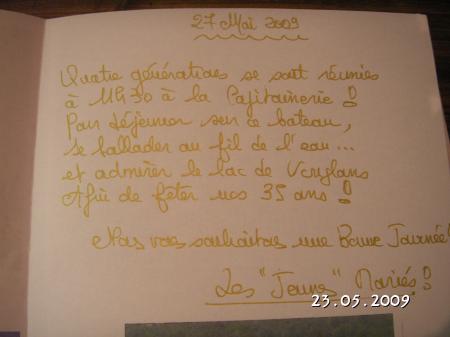 27 Mai 2009
Quatre générations se sont réunies
à 11h30 à la Capitainerie !
Pour déjeuner sur ce bateau,
se ballader au fil de l'eau...
et admirer le lac de Vouglans
Afin de fêter nos 35 ans !
Nous vous souhaitons une Bonne Journée !
Les "Jeunes" Mariés !
23.05.2009